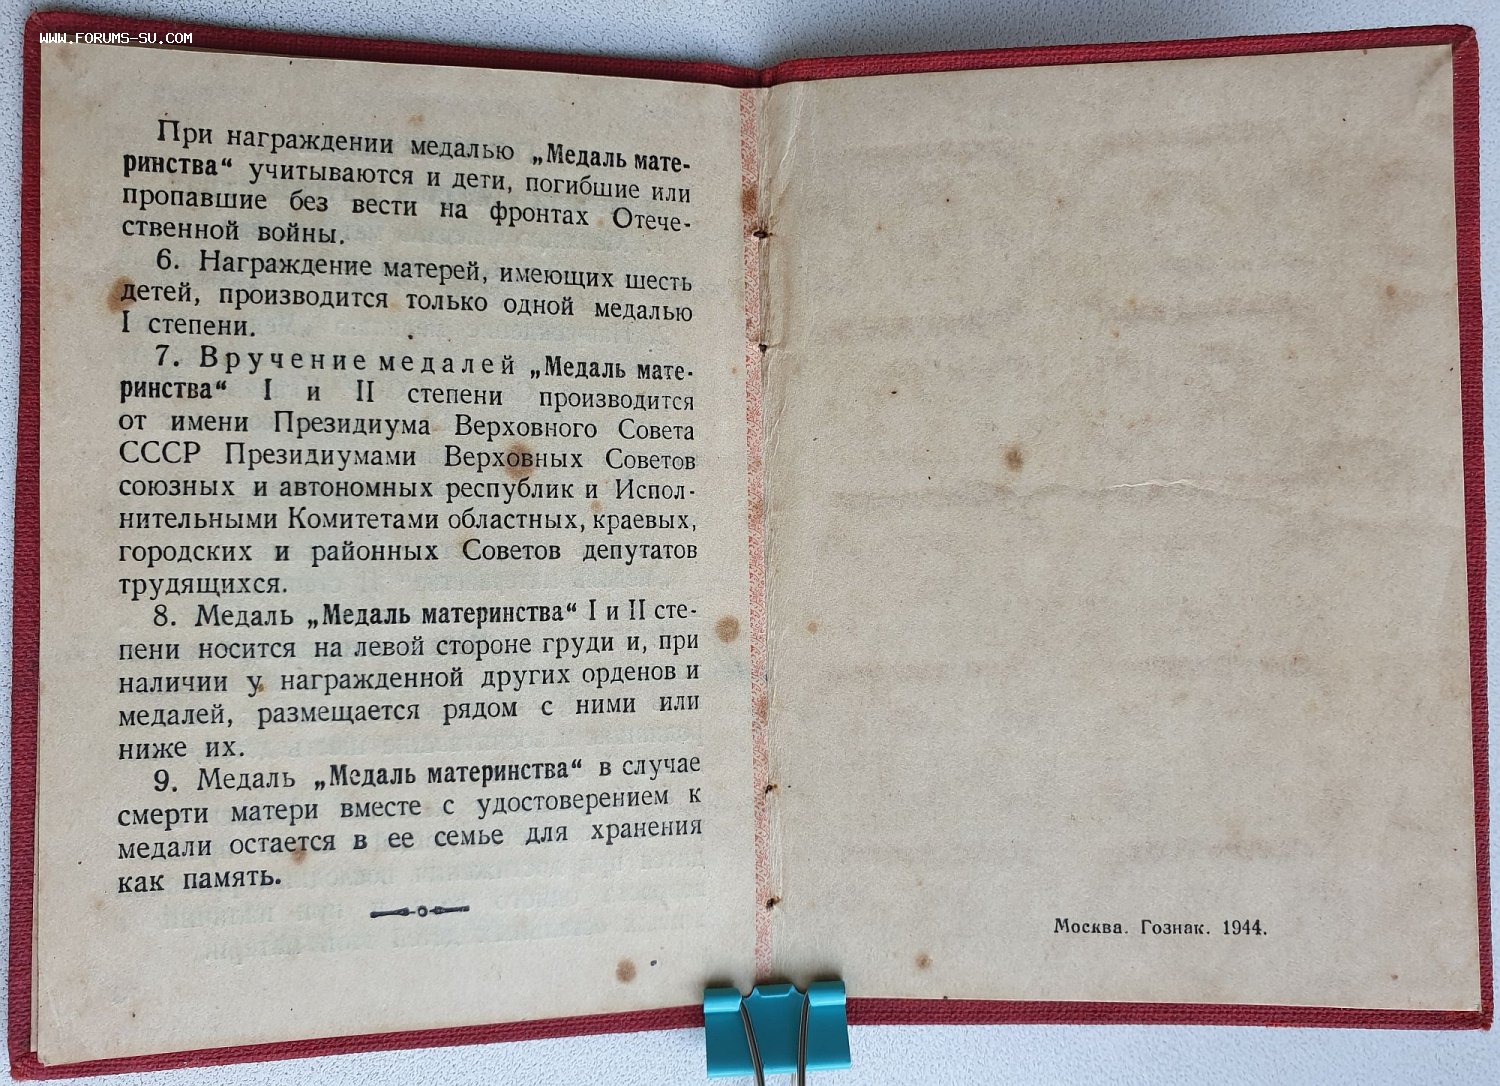 WWW.FORUMS-SU.COM
При награждении медалью „Медаль мате-
ринства“ учитываются и дети, погибшие или
пропавшие без вести на фронтах Отече-
ственной войны.
6. Награждение матерей, имеющих шесть
детей, производится только одной медалью
I степени.
7. Вручение медалей „Медаль мате-
ринства“ I и II степени производится
от имени Президиума Верховного Совета
СССР Президиумами Верховных Советов
союзных и автономных республик и Испол-
нительными Комитетами областных, краевых,
городских и районных Советов депутатов
трудящихся.
8. Медаль „Медаль материнства“ I и II сте-
пени носится на левой стороне груди и, при
наличии у награжденной других орденов и
медалей, размещается рядом с ними или
ниже их.
9. Медаль „Медаль материнства“ в случае
смерти матери вместе с удостоверением к
медали остается в ее семье для хранения
как память.
Москва. Гознак. 1944.